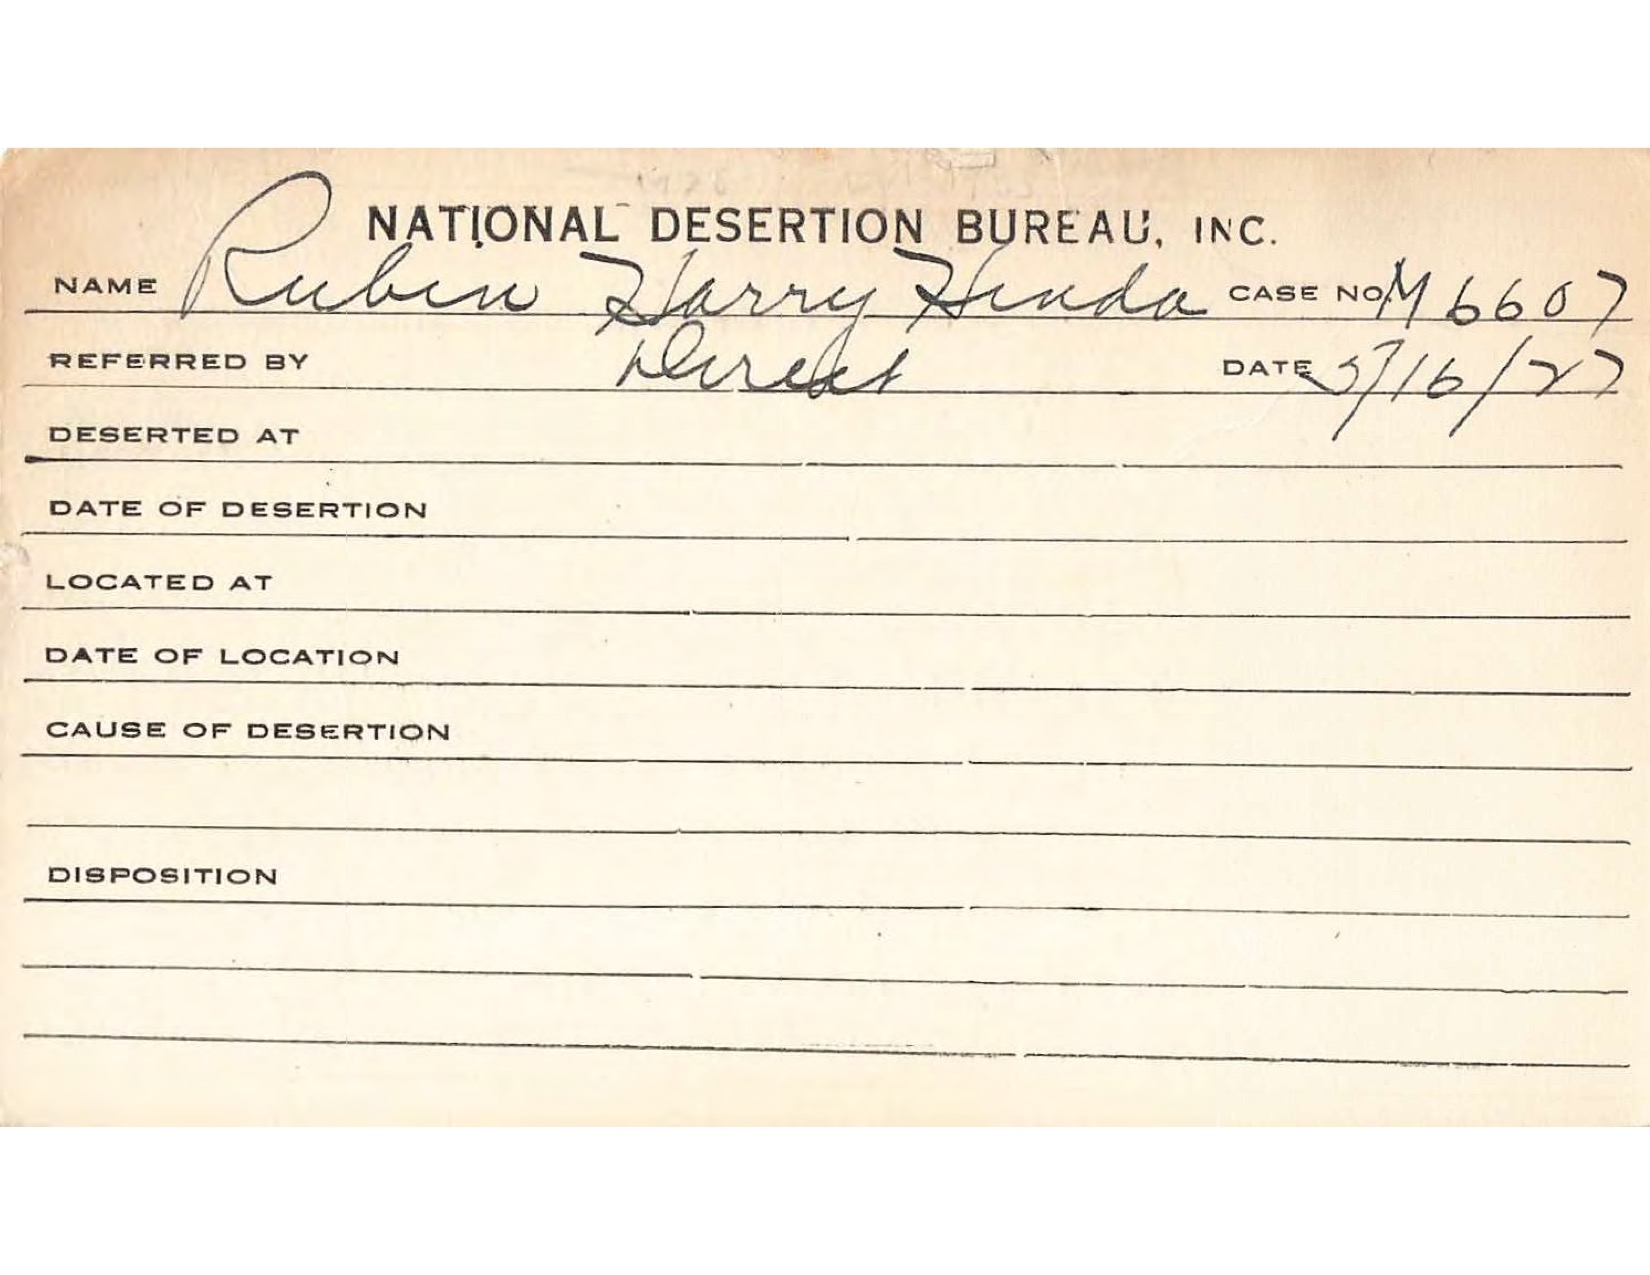 NATIONAL DESERTION BUREAU, INC.
NAME Rubin Harry Hinda CASE NO. M6607
REFERRED BY Direct DATE 5/16/27
DESERTED AT
DATE OF DESERTION
LOCATED AT
DATE OF LOCATION
CAUSE OF DESERTION
DISPOSITION